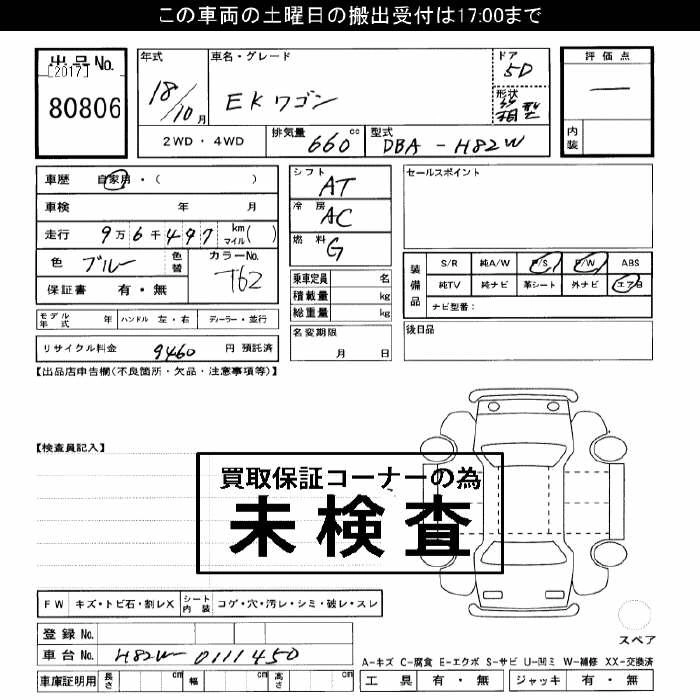 この車両の土曜日の搬出受付は17:00まで
出品No.
[2017]
80806
年式
18/10月
車名・グレード
EKワゴン
ドア
5D
形状
箱型
2WD・4WD
排気量
660cc
型式
DBA-H82W
評価点
—
内装
車歴 自家用・( )
車検 年 月
走行 9万6千497 km マイル( )
色 ブルー 色替
カラーNo.
T62
保証書 有・無
シフト
AT
冷房
AC
燃料
G
セールスポイント
装備品
S/R 純A/W P/S P/W ABS
純TV 純ナビ 革シート 外ナビ エアB
ナビ型番:
乗車定員 名
積載量 kg
総重量 kg
モデル年式 年 ハンドル 左・右 ディーラー・並行
名変期限
月 日
後日品
リサイクル料金 9460 円 預託済
【出品店申告欄(不良箇所・欠品・注意事項等)】
【検査員記入】
買取保証コーナーの為
未検査
FW キズ・トビ石・割レX シート内装 コゲ・穴・汚レ・シミ・破レ・スレ
スペア
登録No.
車台No. H82W-0111450
車庫証明用 長さ cm 幅 cm 高さ cm
A-キズ C-腐食 E-エクボ S-サビ U-凹ミ W-補修 XX-交換済
工具 有・無 ジャッキ 有・無